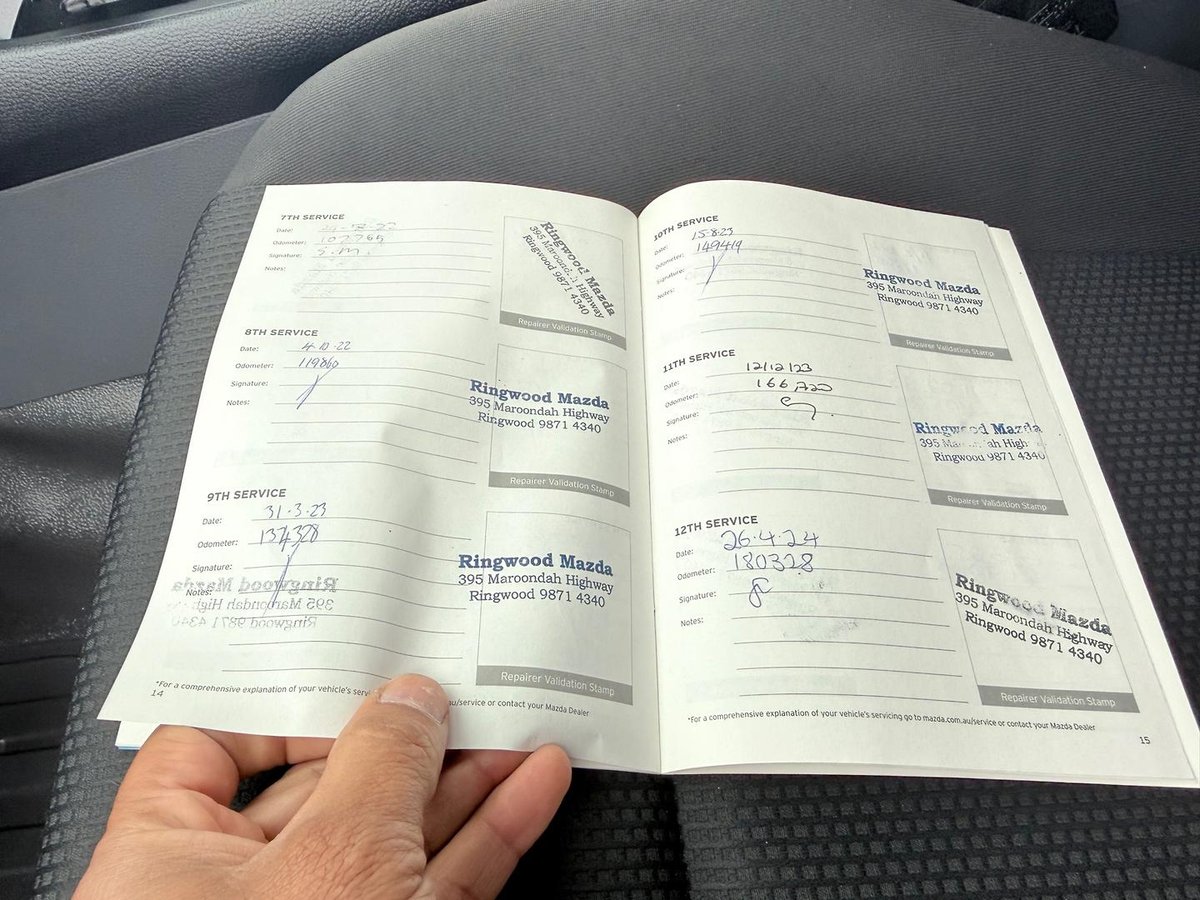 7TH SERVICE
Date:
Odometer: 107765
Signature: S.M.
Notes:
Ringwood Mazda
395 Maroondah Highway
Ringwood 9871 4340
Repairer Validation Stamp
8TH SERVICE
Date: 4·10·22
Odometer: 119860
Signature:
Notes:
Ringwood Mazda
395 Maroondah Highway
Ringwood 9871 4340
Repairer Validation Stamp
9TH SERVICE
Date: 31·3·23
Odometer: 134328
Signature:
Notes:
Ringwood Mazda
395 Maroondah Highway
Ringwood 9871 4340
Ringwood Mazda
395 Maroondah High
Ringwood 9871 4340
Repairer Validation Stamp
*For a comprehensive explanation of your vehicle's au/service or contact your Mazda Dealer
14
10TH SERVICE
Date: 15·8·23
Odometer: 149419
Signature:
Notes:
Ringwood Mazda
395 Maroondah Highway
Ringwood 9871 4340
Repairer Validation Stamp
11TH SERVICE
Date: 12/12/23
Odometer: 166,720
Signature:
Notes:
Ringwood Mazda
395 Maroondah High
Ringwood 9871 4340
Repairer Validation Stamp
12TH SERVICE
Date: 26·4·24
Odometer: 180328
Signature:
Notes:
Ringwood Mazda
395 Maroondah Highway
Ringwood 9871 4340
Repairer Validation Stamp
*For a comprehensive explanation of your vehicle's servicing go to mazda.com.au/service or contact your Mazda Dealer
15